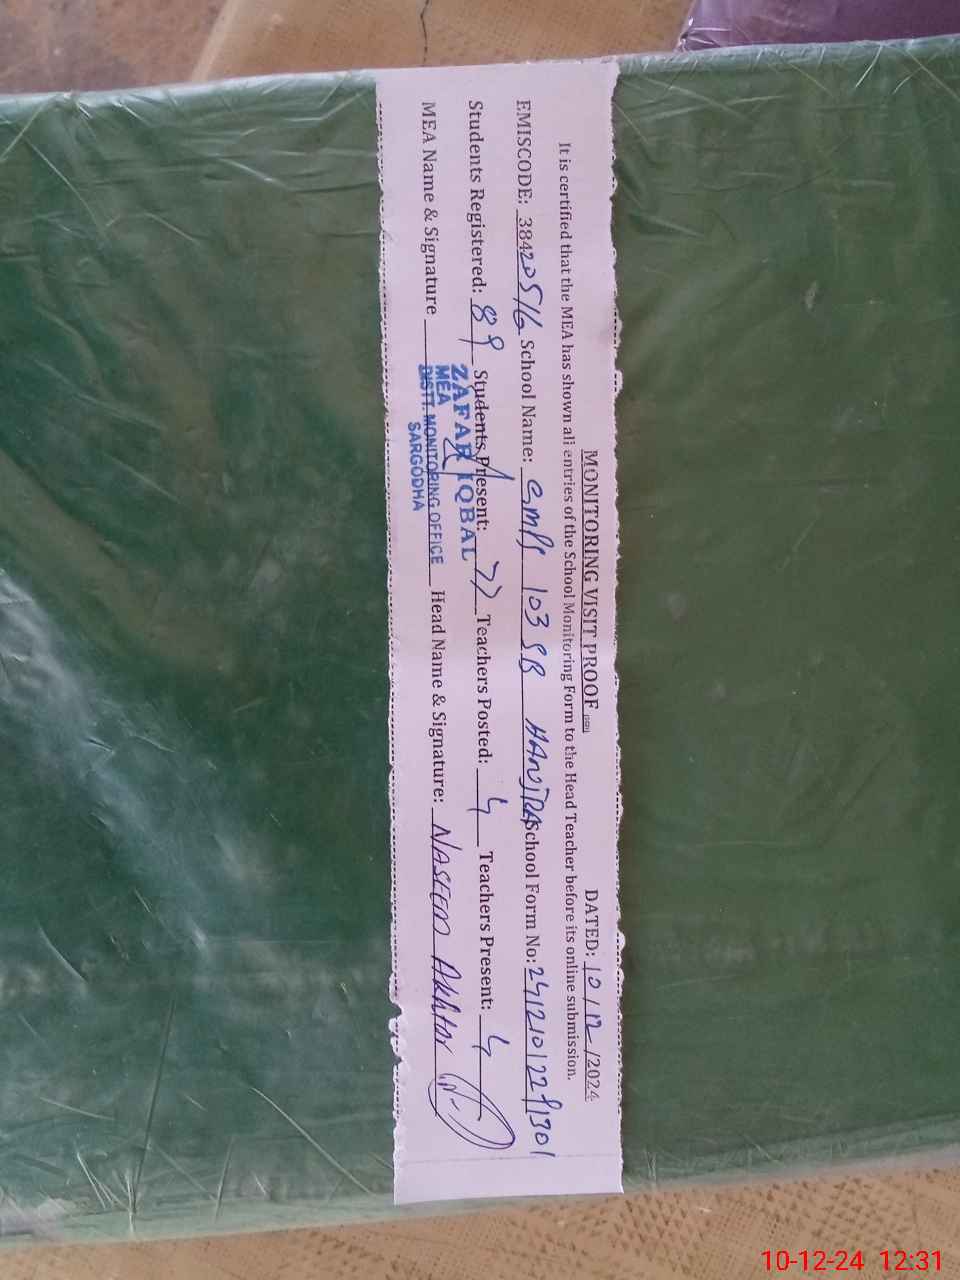 MONITORING VISIT PROOF DATED: 10/12/2024
It is certified that the MEA has shown all entries of the School Monitoring Form to the Head Teacher before its online submission.
EMISCODE: 38420516 School Name: GMPS 103 SB HANJRA School Form No: 
Students Registered: 89 Students Present: 77 Teachers Posted: 4 Teachers Present: 4
MEA Name & Signature Head Name & Signature: Naseem Akhtar
ZAFAR IQBAL
MEA
DISTT. MONITORING OFFICE
SARGODHA
10-12-24 12:31